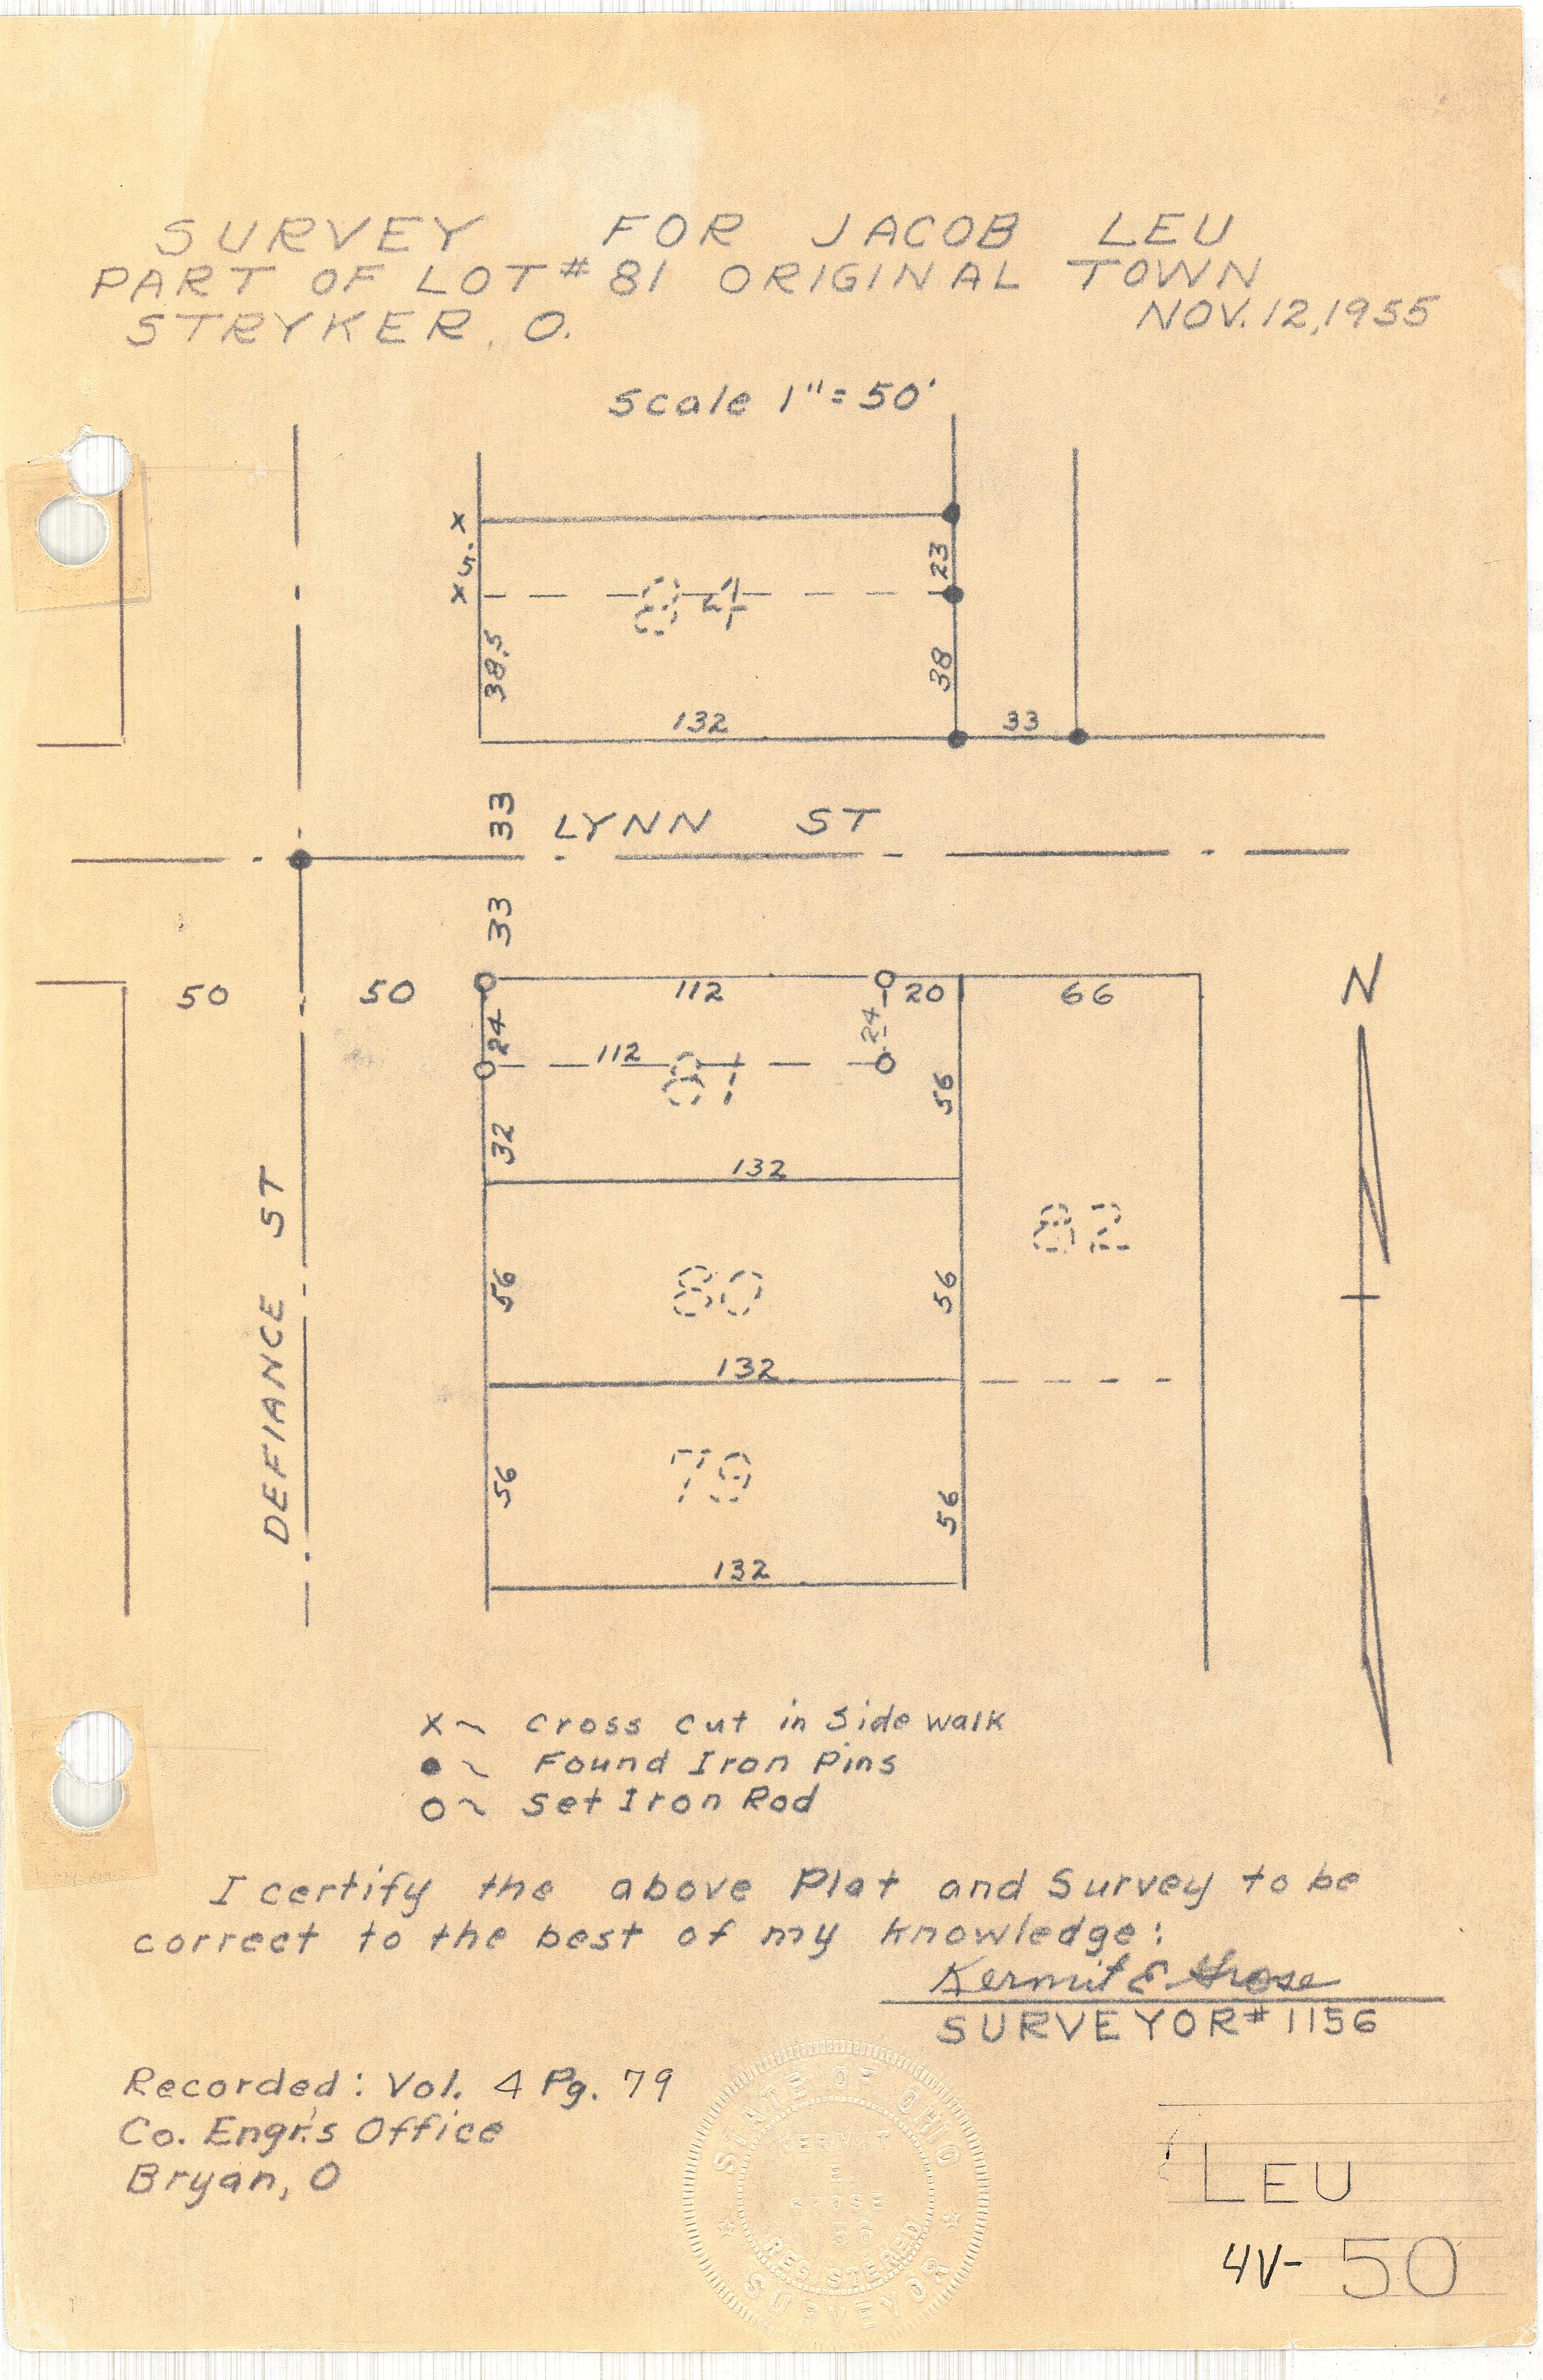 SURVEY FOR JACOB LEU
PART OF LOT # 81 ORIGINAL TOWN
STRYKER, O.
NOV. 12, 1955
Scale 1" = 50'
x
5.
x
23
84
38.5
38
132
33
33
LYNN ST
33
50
50
112
20
66
N
24
24
112
81
56
32
132
DEFIANCE ST
82
56
80
56
132
56
79
56
132
x ~ cross cut in Side walk
● ~ Found Iron Pins
o ~ Set Iron Rod
I certify the above Plat and Survey to be
correct to the best of my knowledge:
Kermit E Grose
SURVEYOR # 1156
Recorded: Vol. 4 Pg. 79
Co. Engr's Office
Bryan, O
STATE OF OHIO
KERMIT
E
GROSE
REGISTERED
SURVEYOR
LEU
4V- 50